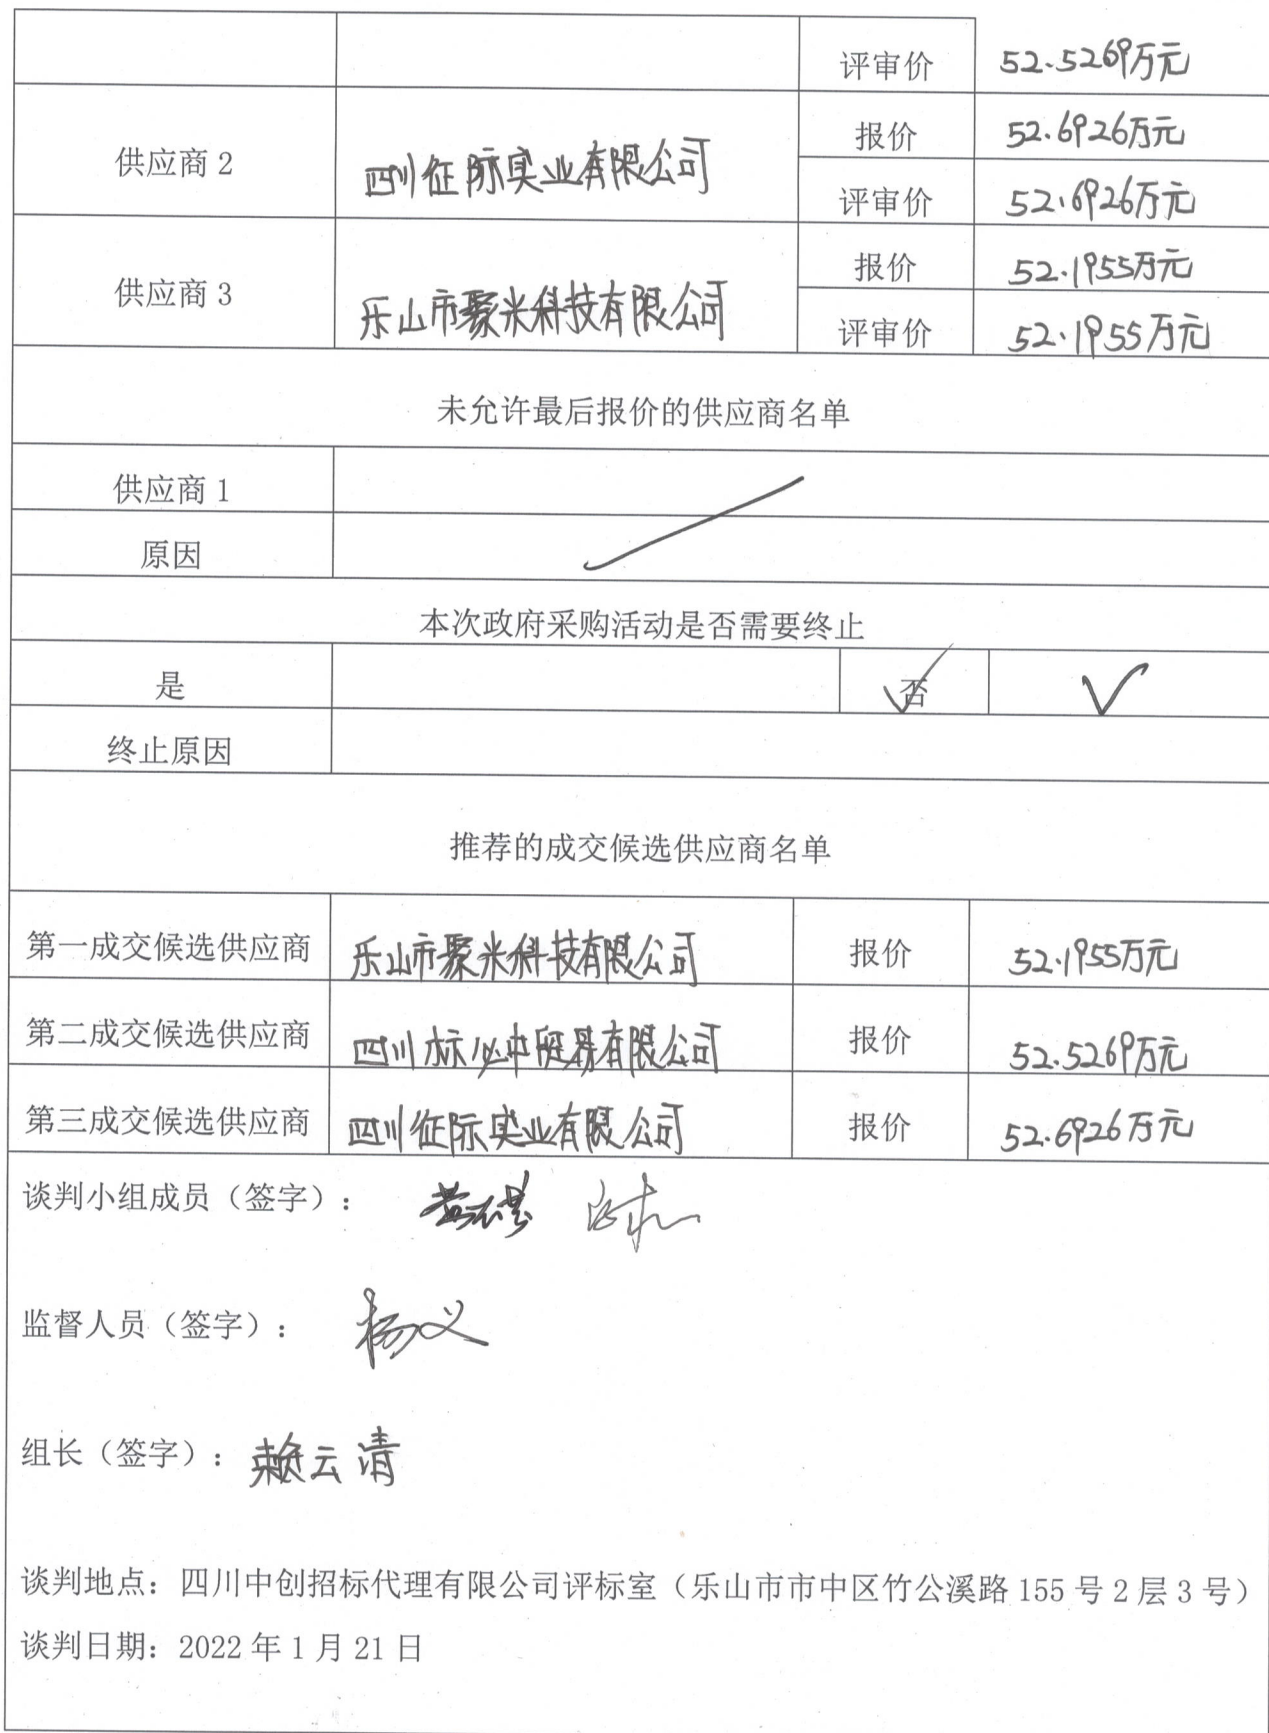 评审价 52.5269万元
供应商 2 四川征际实业有限公司 报价 52.6926万元
评审价 52.6926万元
供应商 3 乐山市聚米科技有限公司 报价 52.1955万元
评审价 52.1955万元
未允许最后报价的供应商名单
供应商 1
原因
本次政府采购活动是否需要终止
是 否 √
终止原因
推荐的成交候选供应商名单
第一成交候选供应商 乐山市聚米科技有限公司 报价 52.1955万元
第二成交候选供应商 四川标必中贸易有限公司 报价 52.5269万元
第三成交候选供应商 四川征际实业有限公司 报价 52.6926万元
谈判小组成员（签字）：
监督人员（签字）： 杨义
组长（签字）：赖云清
谈判地点：四川中创招标代理有限公司评标室（乐山市市中区竹公溪路 155 号 2 层 3 号）
谈判日期：2022 年 1 月 21 日